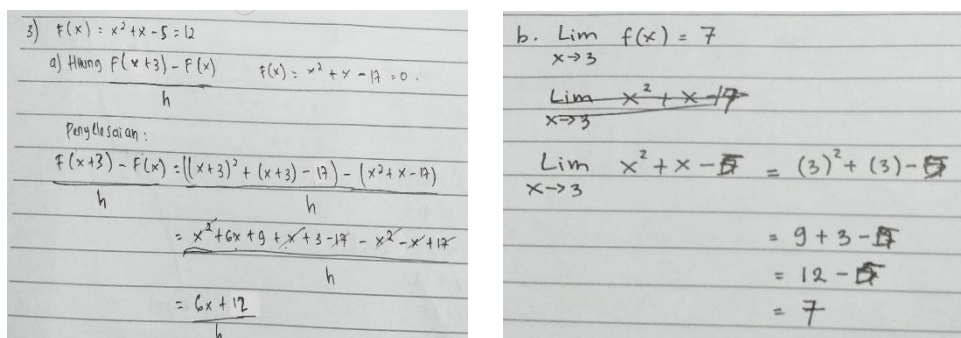 3) F(x) = x² + x - 5 = 12
a) Hitung F(x+3) - F(x) / h   F(x) = x² + x - 17 = 0.
Penyelesaian:
F(x+3) - F(x) / h = ((x+3)² + (x+3) - 17) - (x² + x - 17) / h
= x² + 6x + 9 + x + 3 - 17 - x² - x + 17 / h
= 6x + 12 / h
b. Lim x→3 f(x) = 7
Lim x→3 x² + x - 17
Lim x→3 x² + x - 5 = (3)² + (3) - 5
= 9 + 3 - 5
= 12 - 5
= 7